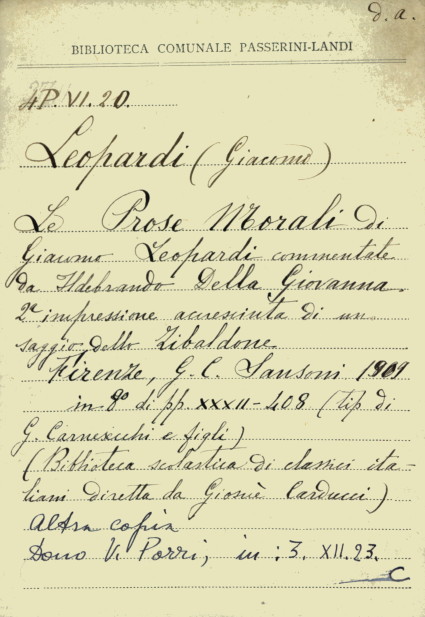 d. a.
BIBLIOTECA COMUNALE PASSERINI-LANDI
4P. VI. 20.
Leopardi (Giacomo)
Le Prose Morali di
Giacomo Leopardi commentate
da Ildebrando Della Giovanna.
2ª impressione accresciuta di un
saggio dello Zibaldone
Firenze, G. C. Sansoni 1909
in-8º di pp. XXXII-408 (tip di
G. Carnesecchi e figli)
(Biblioteca scolastica di classici ita-
liani diretta da Giosuè Carducci)
Altra copia
Dono V. Porri, in: 3. XII. 23.
C